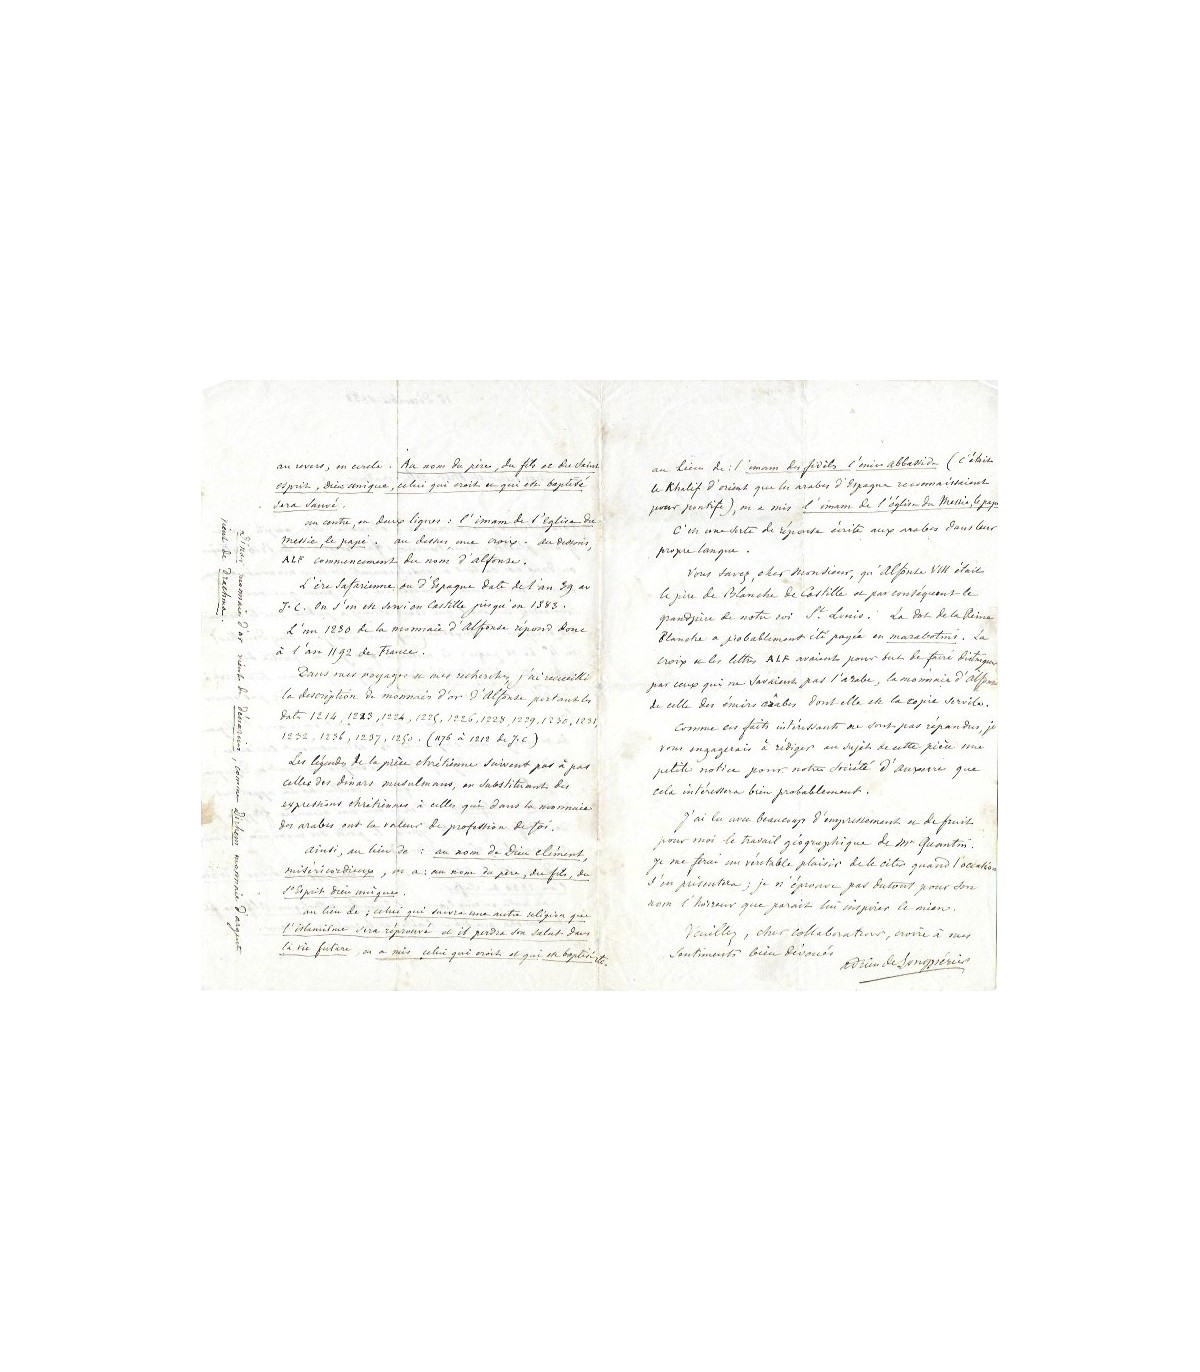 au revers, en cercle. Au nom du père, du fils et du Saint
esprit, dieu unique, celui qui croit et qui est baptisé
sera sauvé.
au centre, en deux lignes : l'imam de l'Eglise du
Messie, le pape. au dessus, une croix. au dessous,
ALF commencement du nom d'alfonse.
L'ère Safarienne ou d'Espagne date de l'an 39 av
J-C. On s'en est servi en Castille jusqu'en 1383.
L'an 1230 de la monnaie d'Alfonse répond donc
à l'an 1192 de France.
Dans mes voyages et mes recherches j'ai recueilli
la description de monnaies d'or d'Alfonse portant les
date 1214, 1223, 1224, 1225, 1226, 1228, 1229, 1230, 1231,
1232, 1236, 1237, 1250. (1176 à 1212 de J.C)
Les légendes de la pièce chrétienne suivent pas à pas
celles des dinars musulmans, en substituant des
expressions chrétiennes à celles qui dans la monnaie
des arabes ont la valeur de profession de foi.
Ainsi, au lieu de : au nom de Dieu clément,
miséricordieux, on a : au nom du père, du fils, du
St Esprit dieu unique.
au lieu de ; celui qui suivra une autre religion que
l'islamisme sera réprouvé et il perdra son salut dans
la vie future, on a mis celui qui croit et qui est baptisé etc.
Dinar monnaie d'or vient de denarius, comme dirhem monnaie d'argent
vient de Drachma.
au lieu de : l'imam des fidèles l'émir abbasside (c'était
le Khalif d'orient que les arabes d'Espagne reconnaissaient
pour pontife), on a mis l'imam de l'église du Messie, le pape
C'est une sorte de réponse écrite aux arabes dans leur
propre langue.
Vous savez, cher Monsieur, qu'Alfonse VIII était
le père de Blanche de Castille et par conséquent le
grandpère de notre roi St Louis. La dot de la Reine
Blanche a probablement été payée en marabotins. La
croix et les lettres ALF avaient pour but de faire distinguer
par ceux qui ne savaient pas l'arabe, la monnaie d'Alfonse
de celle des émirs arabes dont elle est la copie servile.
Comme ces faits intéressants ne sont pas répandus, je
vous engagerais à rédiger au sujet de cette pièce une
petite notice pour notre Société d'Auxerre que
cela intéressera bien probablement.
J'ai lu avec beaucoup d'empressement et de fruit
pour moi le travail géographique de Mr Quantin.
Je me ferai un véritable plaisir de le citer quand l'occasion
s'en présentera ; je n'éprouve pas du tout pour son
nom l'horreur que parait lui inspirer le mien.
Veuillez, cher collaborateur, croire à mes
sentiments bien dévoués
Adrien de Longpérier